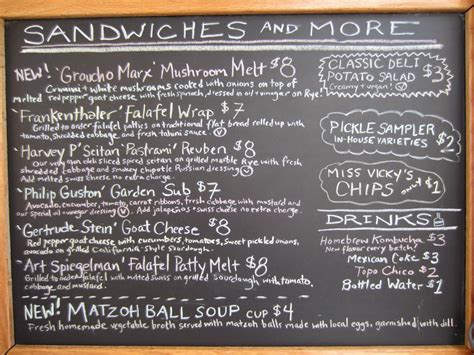 SANDWICHES AND MORE
NEW! 'Groucho Marx' Mushroom Melt $8
Crimini & white mushrooms cooked with onions on top of
melted red pepper goat cheese with fresh spinach, dressed in oil & vinegar on Rye!
'Frankenthaler' Falafel Wrap $7
Grilled to order falafel patties on traditional flat bread rolled up with
tomato, shredded cabbage and fresh tahini sauce. V
'Harvey P' Seitan 'Pastrami' Reuben $8
Our very own deli sliced spiced seitan on grilled marble Rye with fresh
shredded cabbage and smokey chipotle Russian dressing. V
Add melted swiss cheese no extra charge.
'Philip Guston' Garden Sub $7
Avocado, cucumber, tomato, carrot ribbons, fresh cabbage with mustard and
our special oil & vinegar dressing V. Add jalapeños & swiss cheese no extra charge.
'Gertrude Stein' Goat Cheese $8
Red pepper goat cheese with cucumbers, tomatoes, sweet pickled onions,
avocado on grilled California style Sourdough.
'Art Spiegelman' Falafel Patty Melt $8
Grilled to order falafel with melted Swiss on grilled Sourdough with tomato,
cabbage, and mustard.
NEW! MATZOH BALL SOUP CUP $4
Fresh homemade vegetable broth served with matzoh balls made with local eggs, garnished w/ dill.
CLASSIC DELI
POTATO SALAD $3
Creamy & vegan!
PICKLE SAMPLER
IN-HOUSE VARIETIES $2
MISS VICKY'S
CHIPS ONLY $1
DRINKS
Homebrew Kombucha $3
New flavor every batch!
Mexican Coke $3
Topo Chico $2
Bottled Water $1